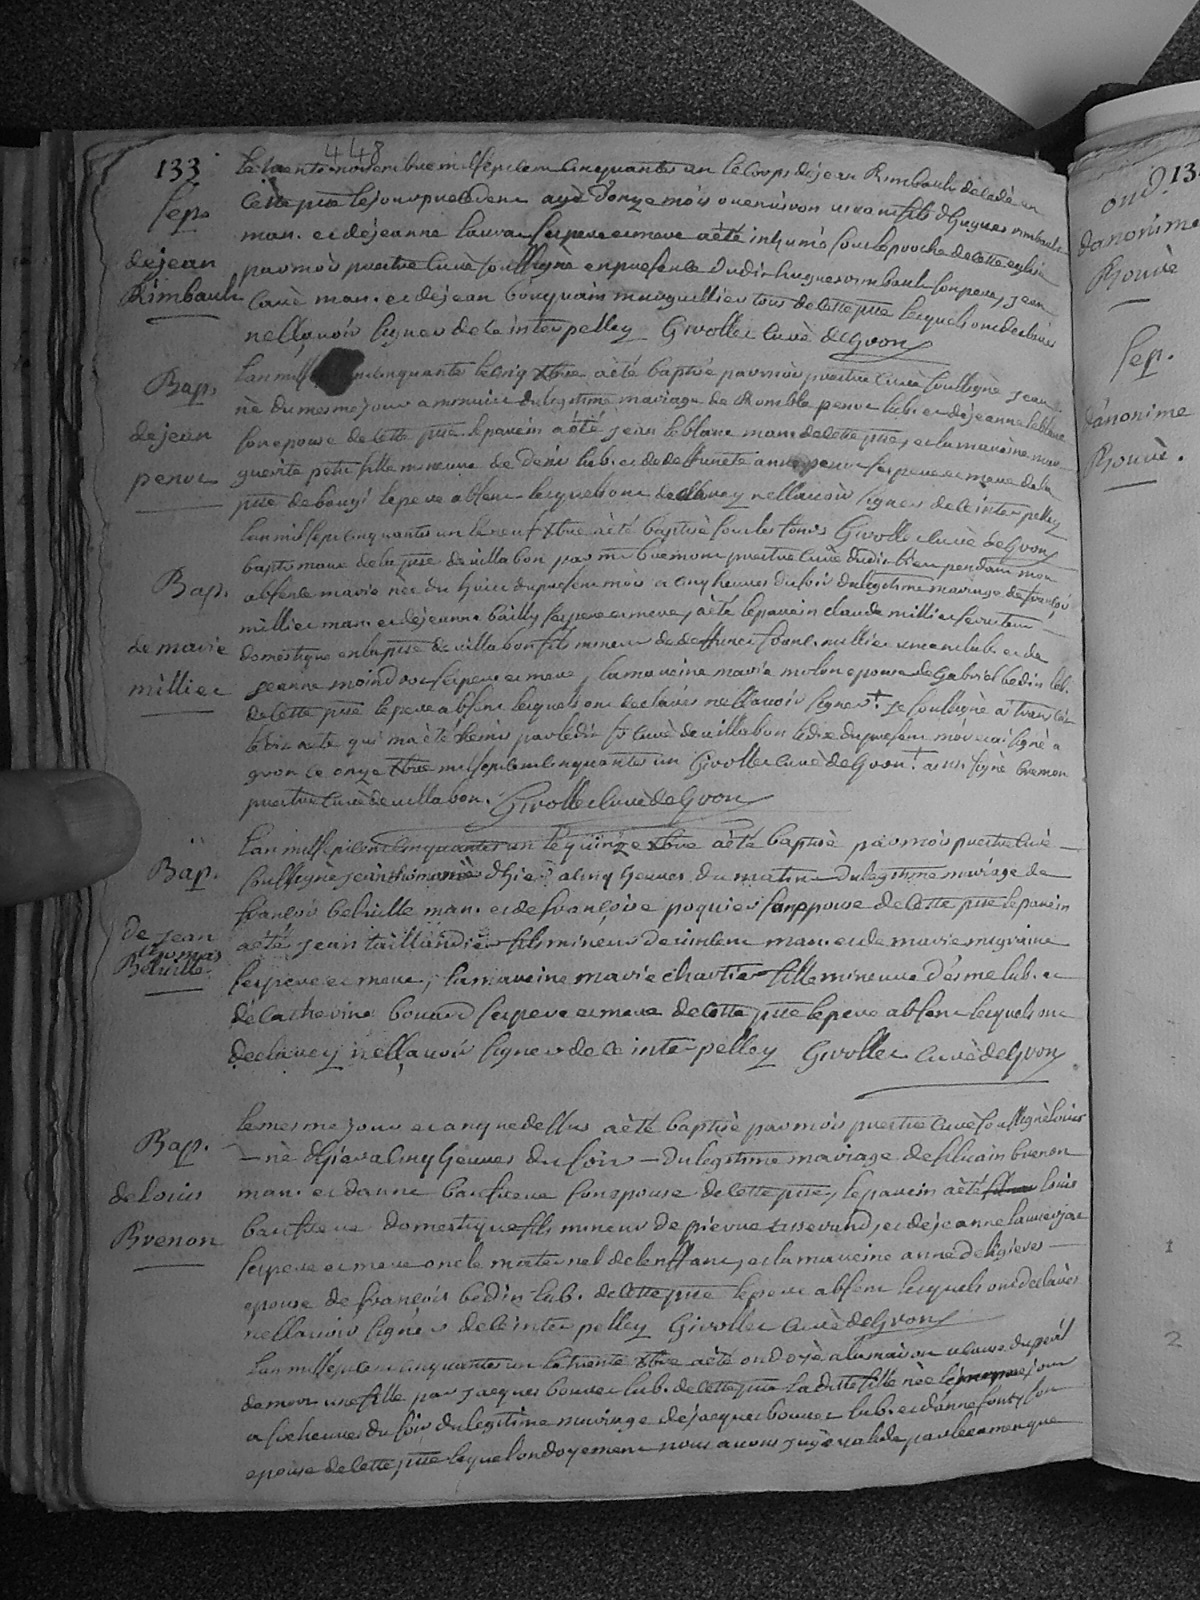 133
448
Sep.
de jean
Rimbault
le trente novembre mil sept cent cinquante un le corps de jean Rimbault décédé en
cette psse le jour precedent agé d'onze mois ou environ vivant fils d'hugues rimbault
man. et de jeanne lauvar ses pere et mere a été inhumé sous le proche de cette eglise
par moi prestre curé soussigné en presence dudit hugues rimbault son pere, jean
man. et de jean bourguain marguillier tous de cette psse lesquels ont declarés
ne sçavoir signer de ce interpelley Givollet curé de Gron
Bap.
de jean
penot
Lan mil cinquante le cinq xbre a été baptisé par moi prestre curé soussigné jean
né du mesme jour a minuit du legitime mariage de Romble penot lab. et de jeanne leblanc
son epouse de cette psse. le parein a été jean leblanc man. de cette psse, et la mareine mar-
guerite petit fille mineure de denis lab. et de deffunte anne penot ses pere et mere de la
psse de bougi le pere absent lesquels ont declarey ne sçavoir signer de ce interpelley
Givollet curé de Gron
Bap.
de marie
millier
Lan mil sept cinquante un le neuf xbre a été baptisé sous les fons
baptismaux de la psse de villabon par mr bremont prestre curé dudit lieu pendant mon
absence marie née du huit du present mois a cinq heures du soir du legitime mariage de françois
millier man. et de jeanne bailly ses pere et mere, a été le parein claude millier serviteur
domestique en la psse de villabon fils mineur de deffunct millier vivant lab. et de
jeanne moindrot ses pere et mere, la mareine marie molon epouse de Gabriel bedin lab.
de cette psse le pere absent lesquels ont declarés ne sçavoir signer + je soussigné a transcri
ledit acte qui m'a été remis par ledit sr curé de villabon le dix du present mois et ai signé a
gron ce onze xbre mil sept cent cinquante un Givollet curé de Gron. + ainsi signé bremon
prestre curé de villabon. Givollet curé de Gron
Bap.
de jean
thomas
Beluille
Lan mil sept cent cinquante un le quinze xbre a été baptisé par moi prestre curé
soussigné jean thomas né d'hier a cinq heures du matin du legitime mariage de
françois beluille man. et de françoise poquier son epouse de cette psse le parein
a été jean taillandier fils mineur de vincent man. et de marie migraine
ses pere et mere, la mareine marie chartier fille mineure d'esme lab. et
de catherine bouard ses pere et mere de cette psse le pere absent lesquels ont
declarey ne sçavoir signer de ce interpelley Givollet curé de Gron
Bap.
de louis
Brenon
le mesme jour et an que dessus a été baptisé par moi prestre curé soussigné louis
né d'hier a cinq heures du soir du legitime mariage de silvain brenon
man. et d'anne baufrere son epouse de cette psse, le parein a été louis
baufrere domestique fils mineur de pierre tisserand, et de jeanne
ses pere et mere oncle maternel de l'enffant, et la mareine anne de ligieres
epouse de françois bedin lab. de cette psse le pere absent lesquels ont declarés
ne sçavoir signer de ce interpelley Givollet curé de Gron
Lan mil sept cent cinquante un le trente xbre a été ondoyé a la maison a cause du peril
de mort une fille par jacques bouver lab. de cette psse la ditte fille née le mesme jour
a six heures du soir du legitime mariage de jacques bouver lab. et d'anne son
epouse de cette psse lequel ondoyement nous avons jugé valide par l'examen que
ond. 13
d'anonime
Rouvé
Sep.
d'anonime
Rouvé.
1
2